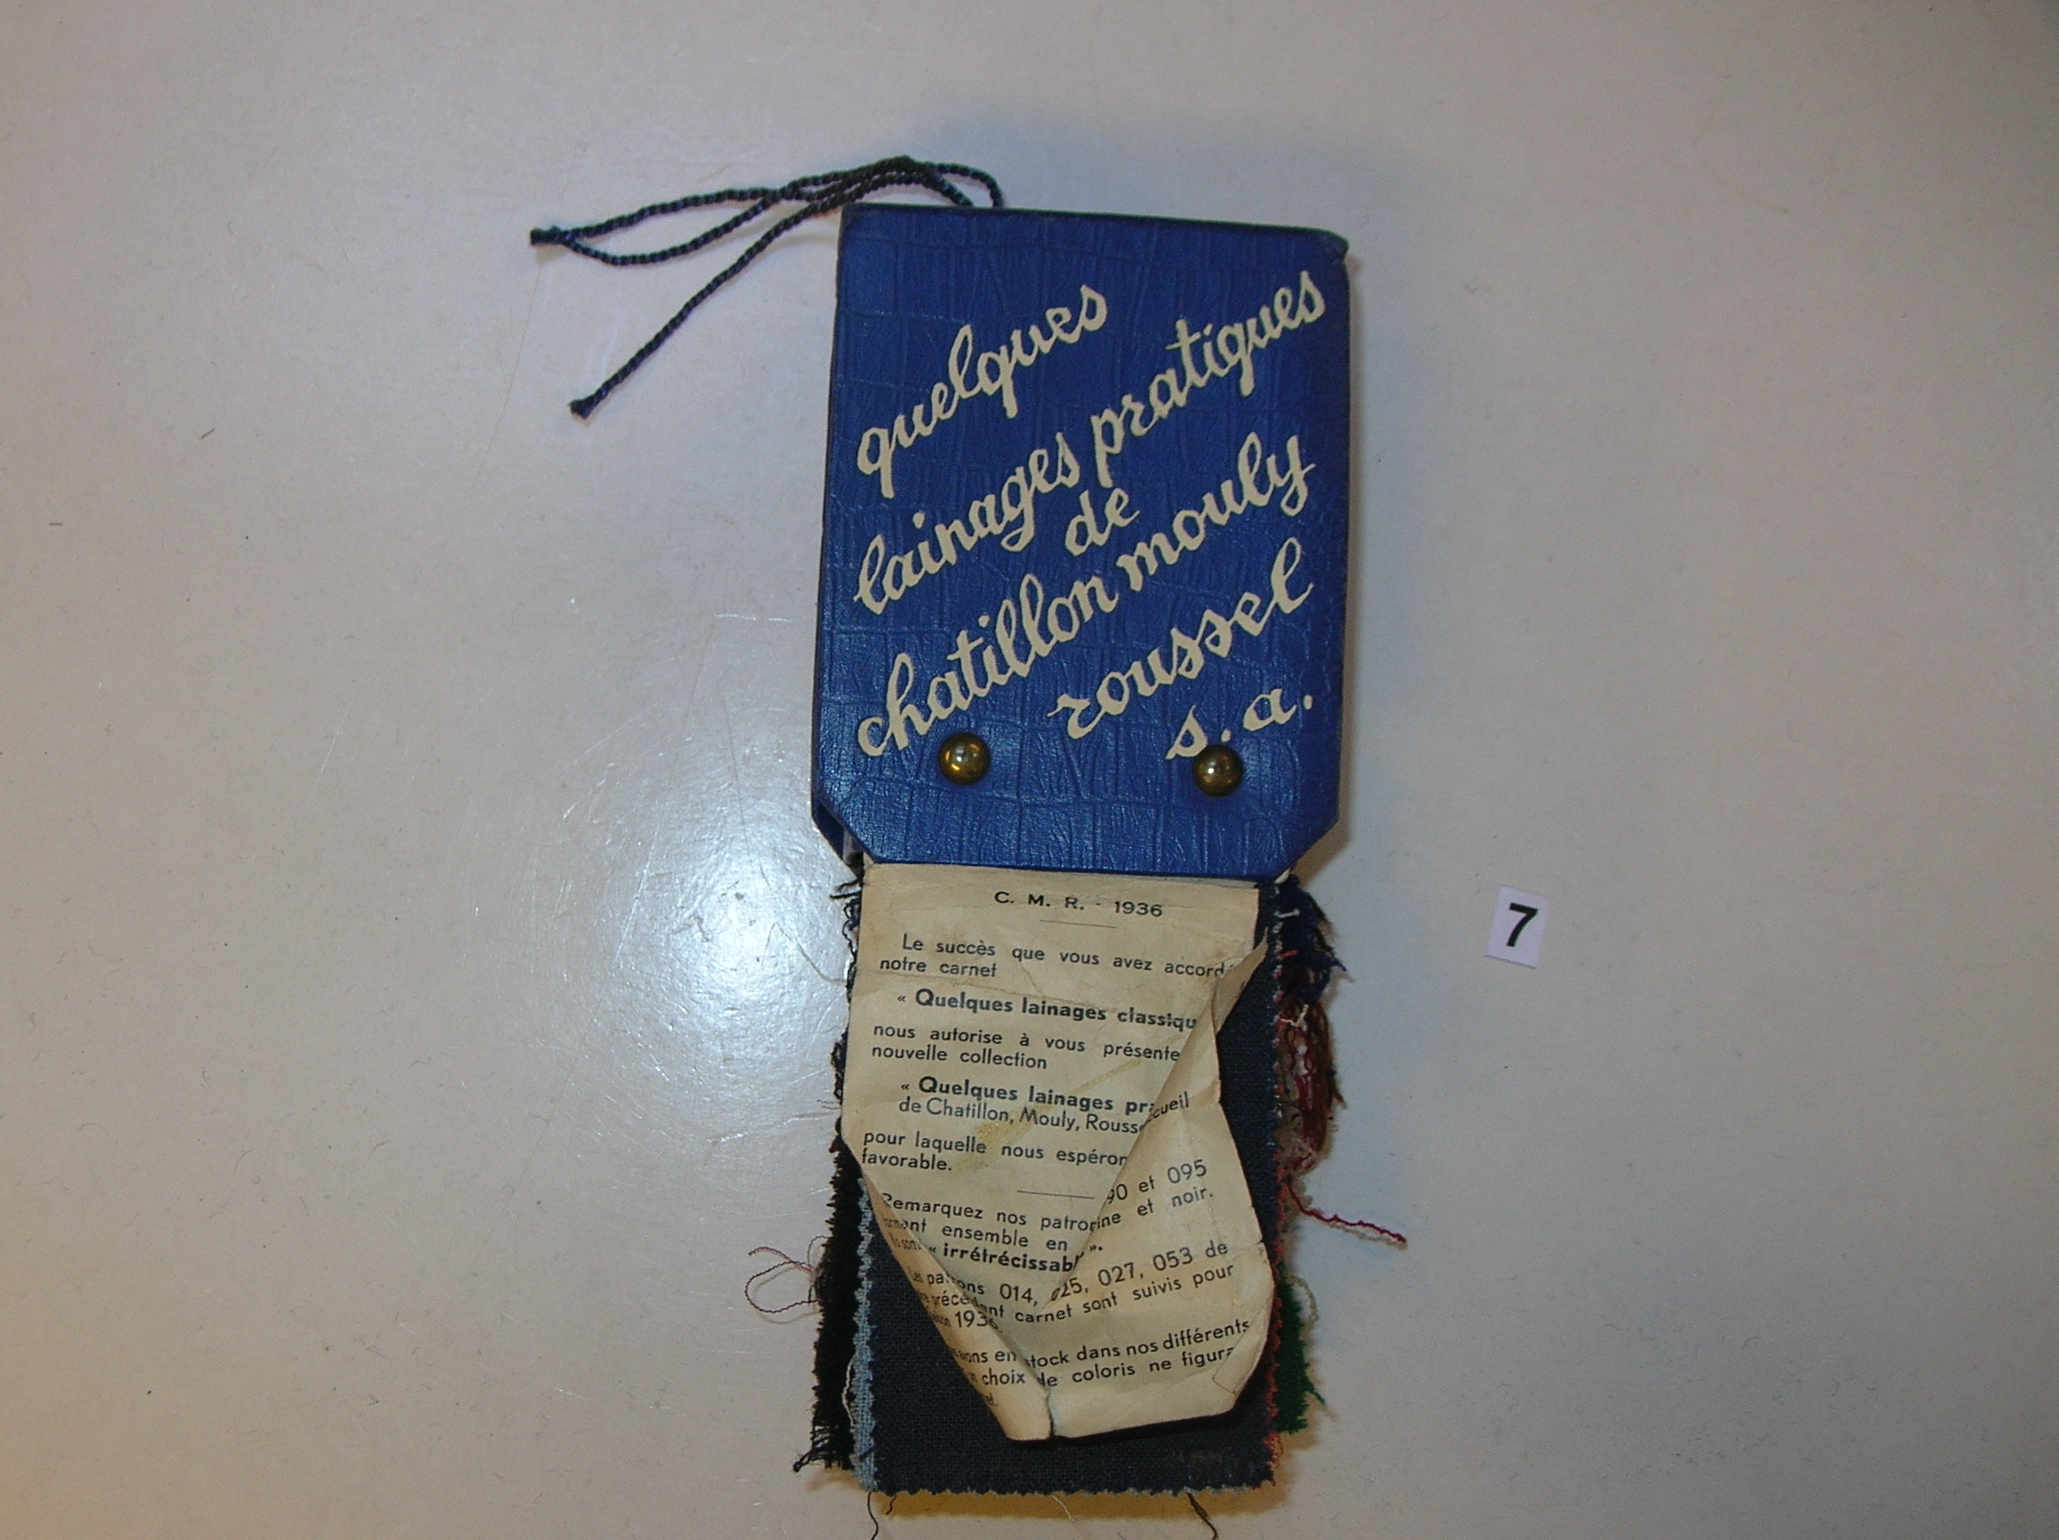 quelques
lainages pratiques
de
chatillon mouly
roussel
s.a.
C. M. R. - 1936
Le succès que vous avez accordé
notre carnet
« Quelques lainages classiqu
nous autorise à vous présente
nouvelle collection
« Quelques lainages pra
de Chatillon, Mouly, Rousse cueil
pour laquelle nous espéron
favorable.
90 et 095
Remarquez nos patro ine et noir.
ensemble en ».
« irrétrécissabl
014, 025, 027, 053 de
carnet sont suivis pour
193
en stock dans nos différents
choix de coloris ne figura
7